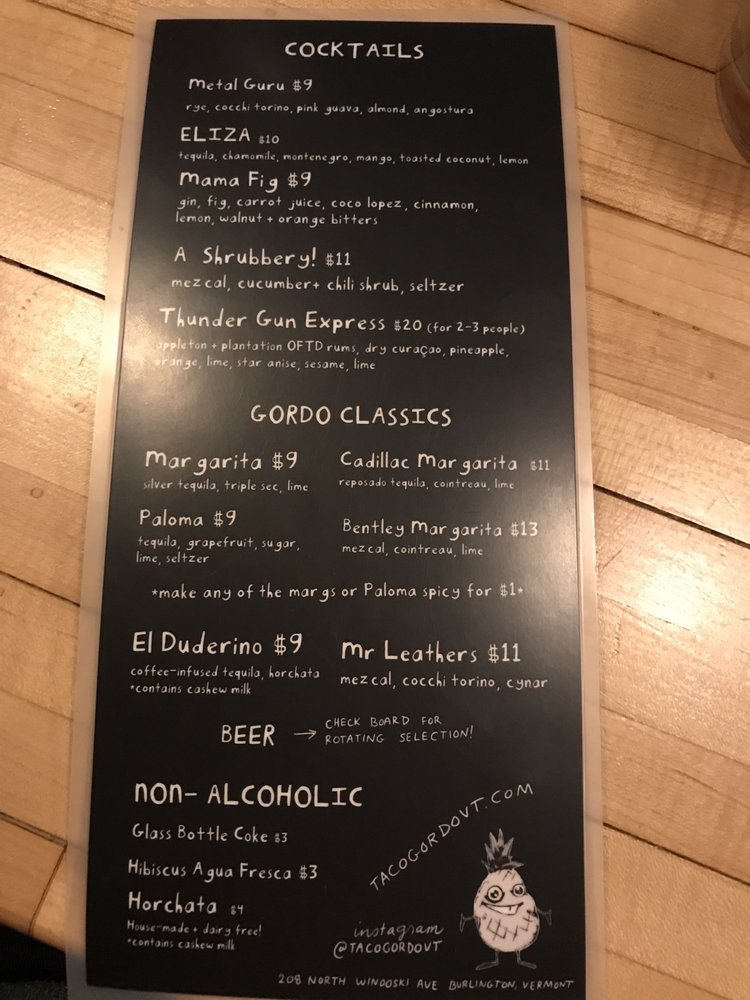 COCKTAILS
Metal Guru $9
rye, cocchi torino, pink guava, almond, angostura
ELIZA $10
tequila, chamomile, montenegro, mango, toasted coconut, lemon
Mama Fig $9
gin, fig, carrot juice, coco lopez, cinnamon,
lemon, walnut + orange bitters
A Shrubbery! $11
mezcal, cucumber+ chili shrub, seltzer
Thunder Gun Express $20 (for 2-3 people)
appleton + plantation OFTD rums, dry curaçao, pineapple,
orange, lime, star anise, sesame, lime
GORDO CLASSICS
Margarita $9
silver tequila, triple sec, lime
Cadillac Margarita $11
reposado tequila, cointreau, lime
Paloma $9
tequila, grapefruit, sugar,
lime, seltzer
Bentley Margarita $13
mezcal, cointreau, lime
*make any of the margs or Paloma spicy for $1*
El Duderino $9
coffee-infused tequila, horchata
*contains cashew milk
Mr Leathers $11
mezcal, cocchi torino, cynar
BEER → CHECK BOARD FOR
ROTATING SELECTION!
non-ALCOHOLIC
Glass Bottle Coke $3
Hibiscus Agua Fresca $3
Horchata $4
House-made + dairy free!
*contains cashew milk
TACOGORDOVT.COM
instagram
@TACOGORDOVT
208 NORTH WINOOSKI AVE BURLINGTON, VERMONT